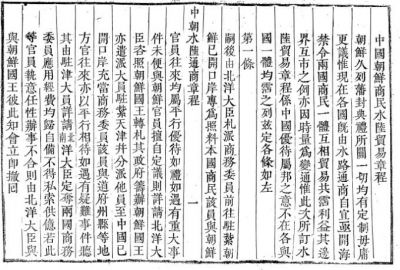 中國朝鮮商民水陸貿易章程
朝鮮久列藩封典禮所關一切均有定制毋庸
更議惟現在各國既由水路通商自宜亟開海
禁令兩國商民一體互相貿易共霑利益其邊
界互市之例亦因時量為變通惟此次所訂水
陸貿易章程係中國優待屬邦之意不在各與
國一體均霑之列茲定各條如左
第一條
嗣後由北洋大臣札派商務委員前往駐紮朝
鮮已開口岸專為照料本國商民該員與朝鮮
中朝水陸通商章程 一
官員往來均屬平行優待如禮如遇有重大事
件未便與朝鮮官員擅自定議則詳請北洋大
臣咨照朝鮮國王轉札其政府籌辦朝鮮國王
亦遣派大員駐紮天津并分派他員至中國已
開口岸充當商務委員該員與道府州縣等地
方官往來亦以平行相待如遇有疑難事件聽
其由駐津大員詳請南北洋大臣定奪兩國商務
委員應用經費均歸自備不得私索供億若此
等官員執意任性辦事不合則由北洋大臣與
與朝鮮國王彼此知會立即撤回